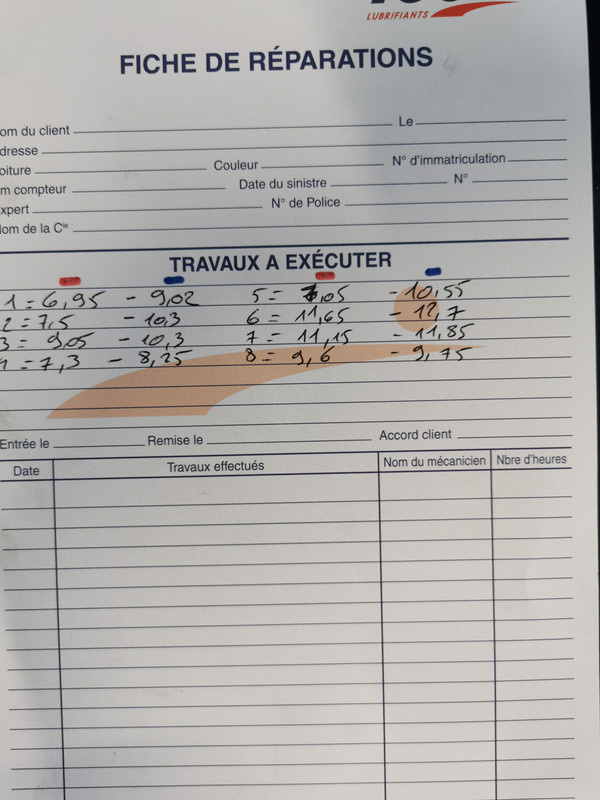 LUBRIFIANTS
FICHE DE RÉPARATIONS
om du client Le
dresse
oiture Couleur N° d'immatriculation
m compteur Date du sinistre N°
xpert N° de Police
om de la Cie
TRAVAUX A EXÉCUTER
1 = 6,95 - 9,02 5 = ,05 - 10,55
2 = 7,5 - 10,3 6 = 11,65 - 12,7
3 = 9,05 - 10,3 7 = 11,15 - 11,85
4 = 7,3 - 8,25 8 = 9,6 - 9,75
Entrée le Remise le Accord client
Date Travaux effectués Nom du mécanicien Nbre d'heures